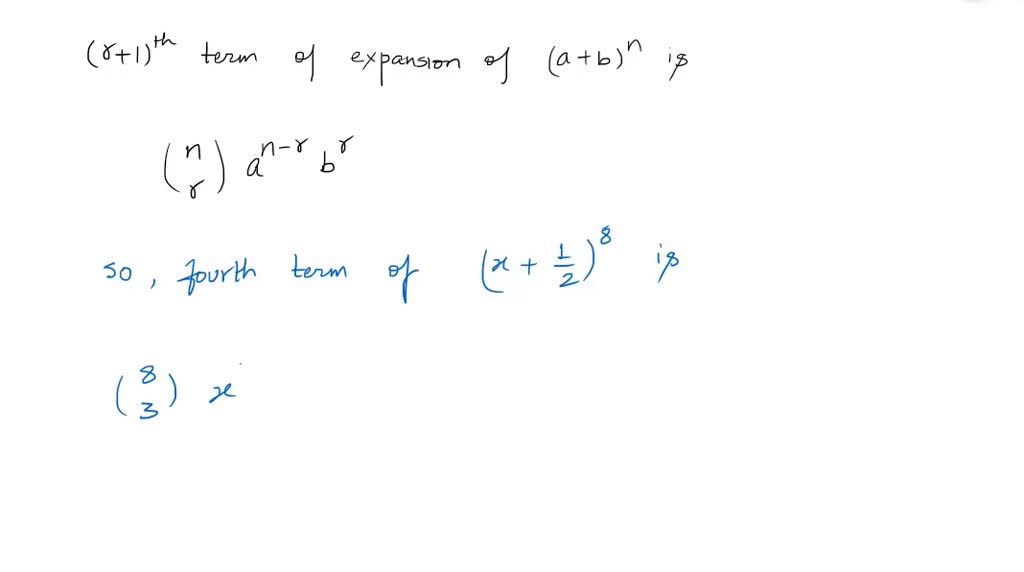 (r+1)^th term of expansion of (a+b)^n is
(n r) a^n-r b^r
so, fourth term of (x + 1/2)^8 is
(8 3) x